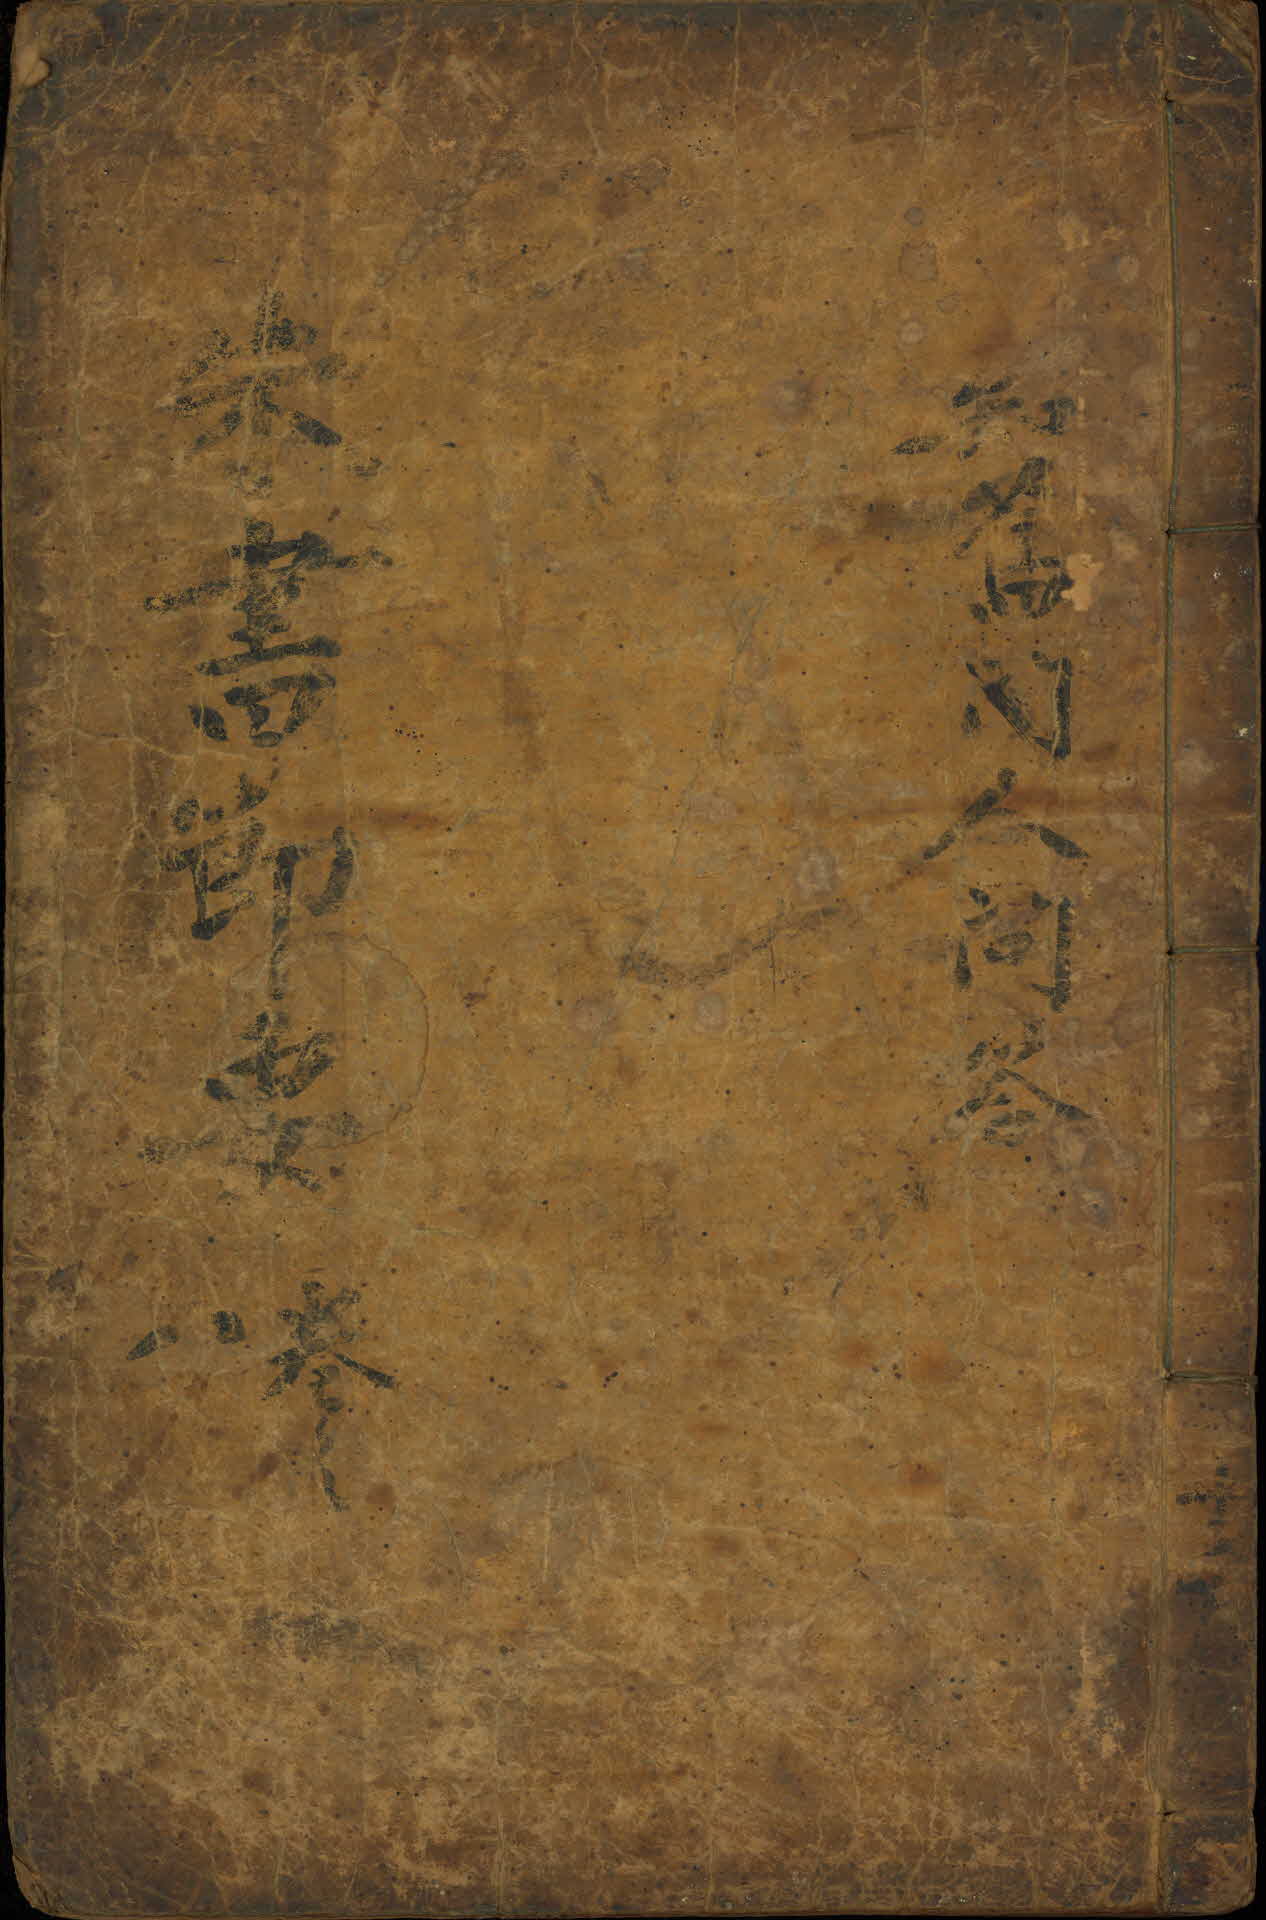 知舊門人問答
朱書節要
卷之
八